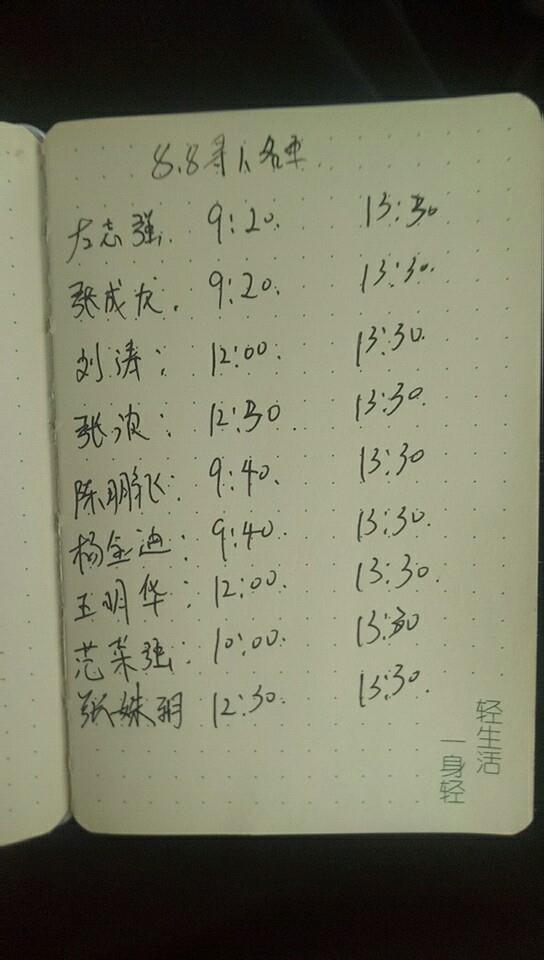 8.8寻人名单
左志强. 9:20. 13:30
张成龙. 9:20. 13:30.
刘涛: 12:00. 13:30.
张波: 12:30 13:30.
陈鹏飞: 9:40. 13:30
杨金迪: 9:40. 13:30.
王明华: 12:00. 13:30.
范荣强: 10:00. 13:30
张姝玥 12:30. 13:30.
轻生活
一身轻